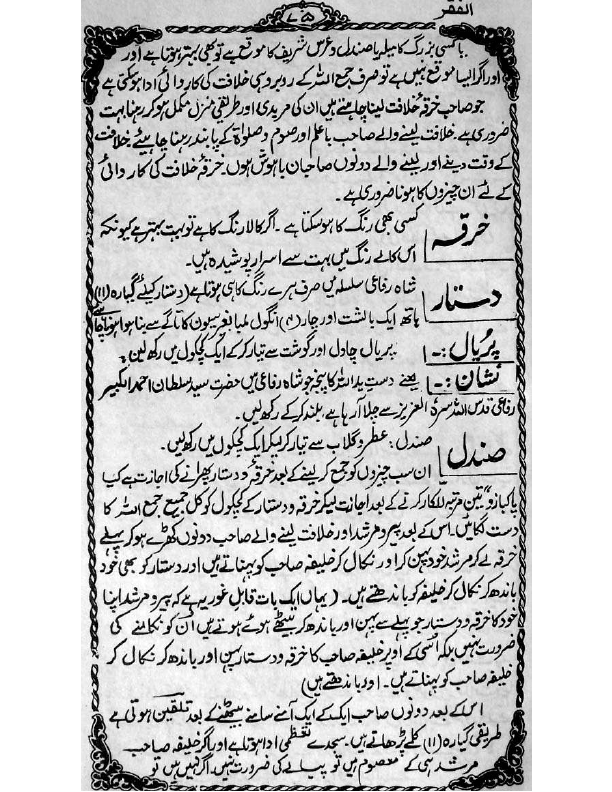 الفقر
۷۵
یا کسی بزرگ کا میلہ یا صندل و عرس شریف کا موقع ہے تو بھی بہتر ہوتا ہے اور
اور اگر ایسا موقع نہیں ہے تو صرف جمع اللہ کے روبرو ہی خلافت کی کاروائی ادا ہو سکتی ہے
جو صاحب خرقۂ خلافت لینا چاہتے ہیں ان کی مریدی اور طریقی منزل مکمل ہو کر رہنا بہت
ضروری ہے۔ خلافت لینے والے صاحب با علم اور صوم و صلوٰۃ کے پابند رہنا چاہیئے۔ خلافت
کے وقت دینے اور لینے والے دونوں صاحبان باہوش ہوں۔ خرقۂ خلافت کی کاروائی
کے لئے ان چیزوں کا ہونا ضروری ہے۔
خرقہ کسی بھی رنگ کا ہو سکتا ہے۔ اگر کالا رنگ کا ہے تو بہت بہتر ہے کیونکہ
اس کالے رنگ میں بہت سے اسرار پوشیدہ ہیں۔
دستار شاہ رفاعی سلسلہ میں صرف ہرے رنگ کا ہی ہوتا ہے (دستار کیلئے گیارہ (۱۱)
ہاتھ ایک بالشت اور چار (۴) انگول لمبا بغیر سیون کا تاگے سے بنا ہوا ہونا چاہیئے
پریال :۔ پریال چاول اور گوشت سے تیار کر کے ایک کچکول میں رکھ لیں۔
نشان :۔ یعنے دستِ ید اللہ کا پنجہ جو شاہ رفاعی میں حضرت سید سلطان احمد الکبیر
رفاعی قدس اللہ سرہٗ العزیز سے چلا آ رہا ہے، بلند کر کے رکھ لیں۔
صندل صندل: عطر و گلاب سے تیار کر کے ایک کچکول میں رکھ لیں۔
ان سب چیزوں کو جمع کر لینے کے بعد خرقہ و دستار پھرانے کی اجازت ہے کیا
تین مرتبہ للکار کرنے کے بعد اجازت لیکر خرقہ و دستار کے کچکول کو کل جمیع جمع اللہ کا
دست لگائیں۔ اس کے بعد پیر و مرشد اور خلافت لینے والے صاحب دونوں کھڑے ہو کر پہلے
خرقہ لے کر مرشد خود پہن کر اور نکال کر خلیفہ صاحب کو پہناتے ہیں اور دستار کو بھی خود
باندھ کر نکال کر خلیفہ کو باندھتے ہیں۔ (یہاں ایک بات قابلِ غور یہ ہے کہ پیر و مرشد اپنا
خود کا خرقہ و دستار جو پہلے سے پہن اور باندھ کر بیٹھے ہوئے ہوتے ہیں اُن کو نکالنے کی
ضرورت نہیں بلکہ اُسی کے اوپر خلیفہ صاحب کا خرقہ و دستار پہن اور باندھ کر نکال کر
خلیفہ صاحب کو پہناتے ہیں۔ اور باندھتے ہیں)
اس کے بعد دونوں صاحب ایک کے ایک آمنے سامنے بیٹھنے کے بعد تلقین ہوتی ہے
طریقی گیارہ (۱۱) کلمے پڑھاتے ہیں۔ سجدے تعظمی ادا ہوتا ہے اور اگر خلیفہ صاحب
مرشد ہی کے معصوم ہیں تو پیالے کی ضرورت نہیں۔ اگر نہیں ہیں تو